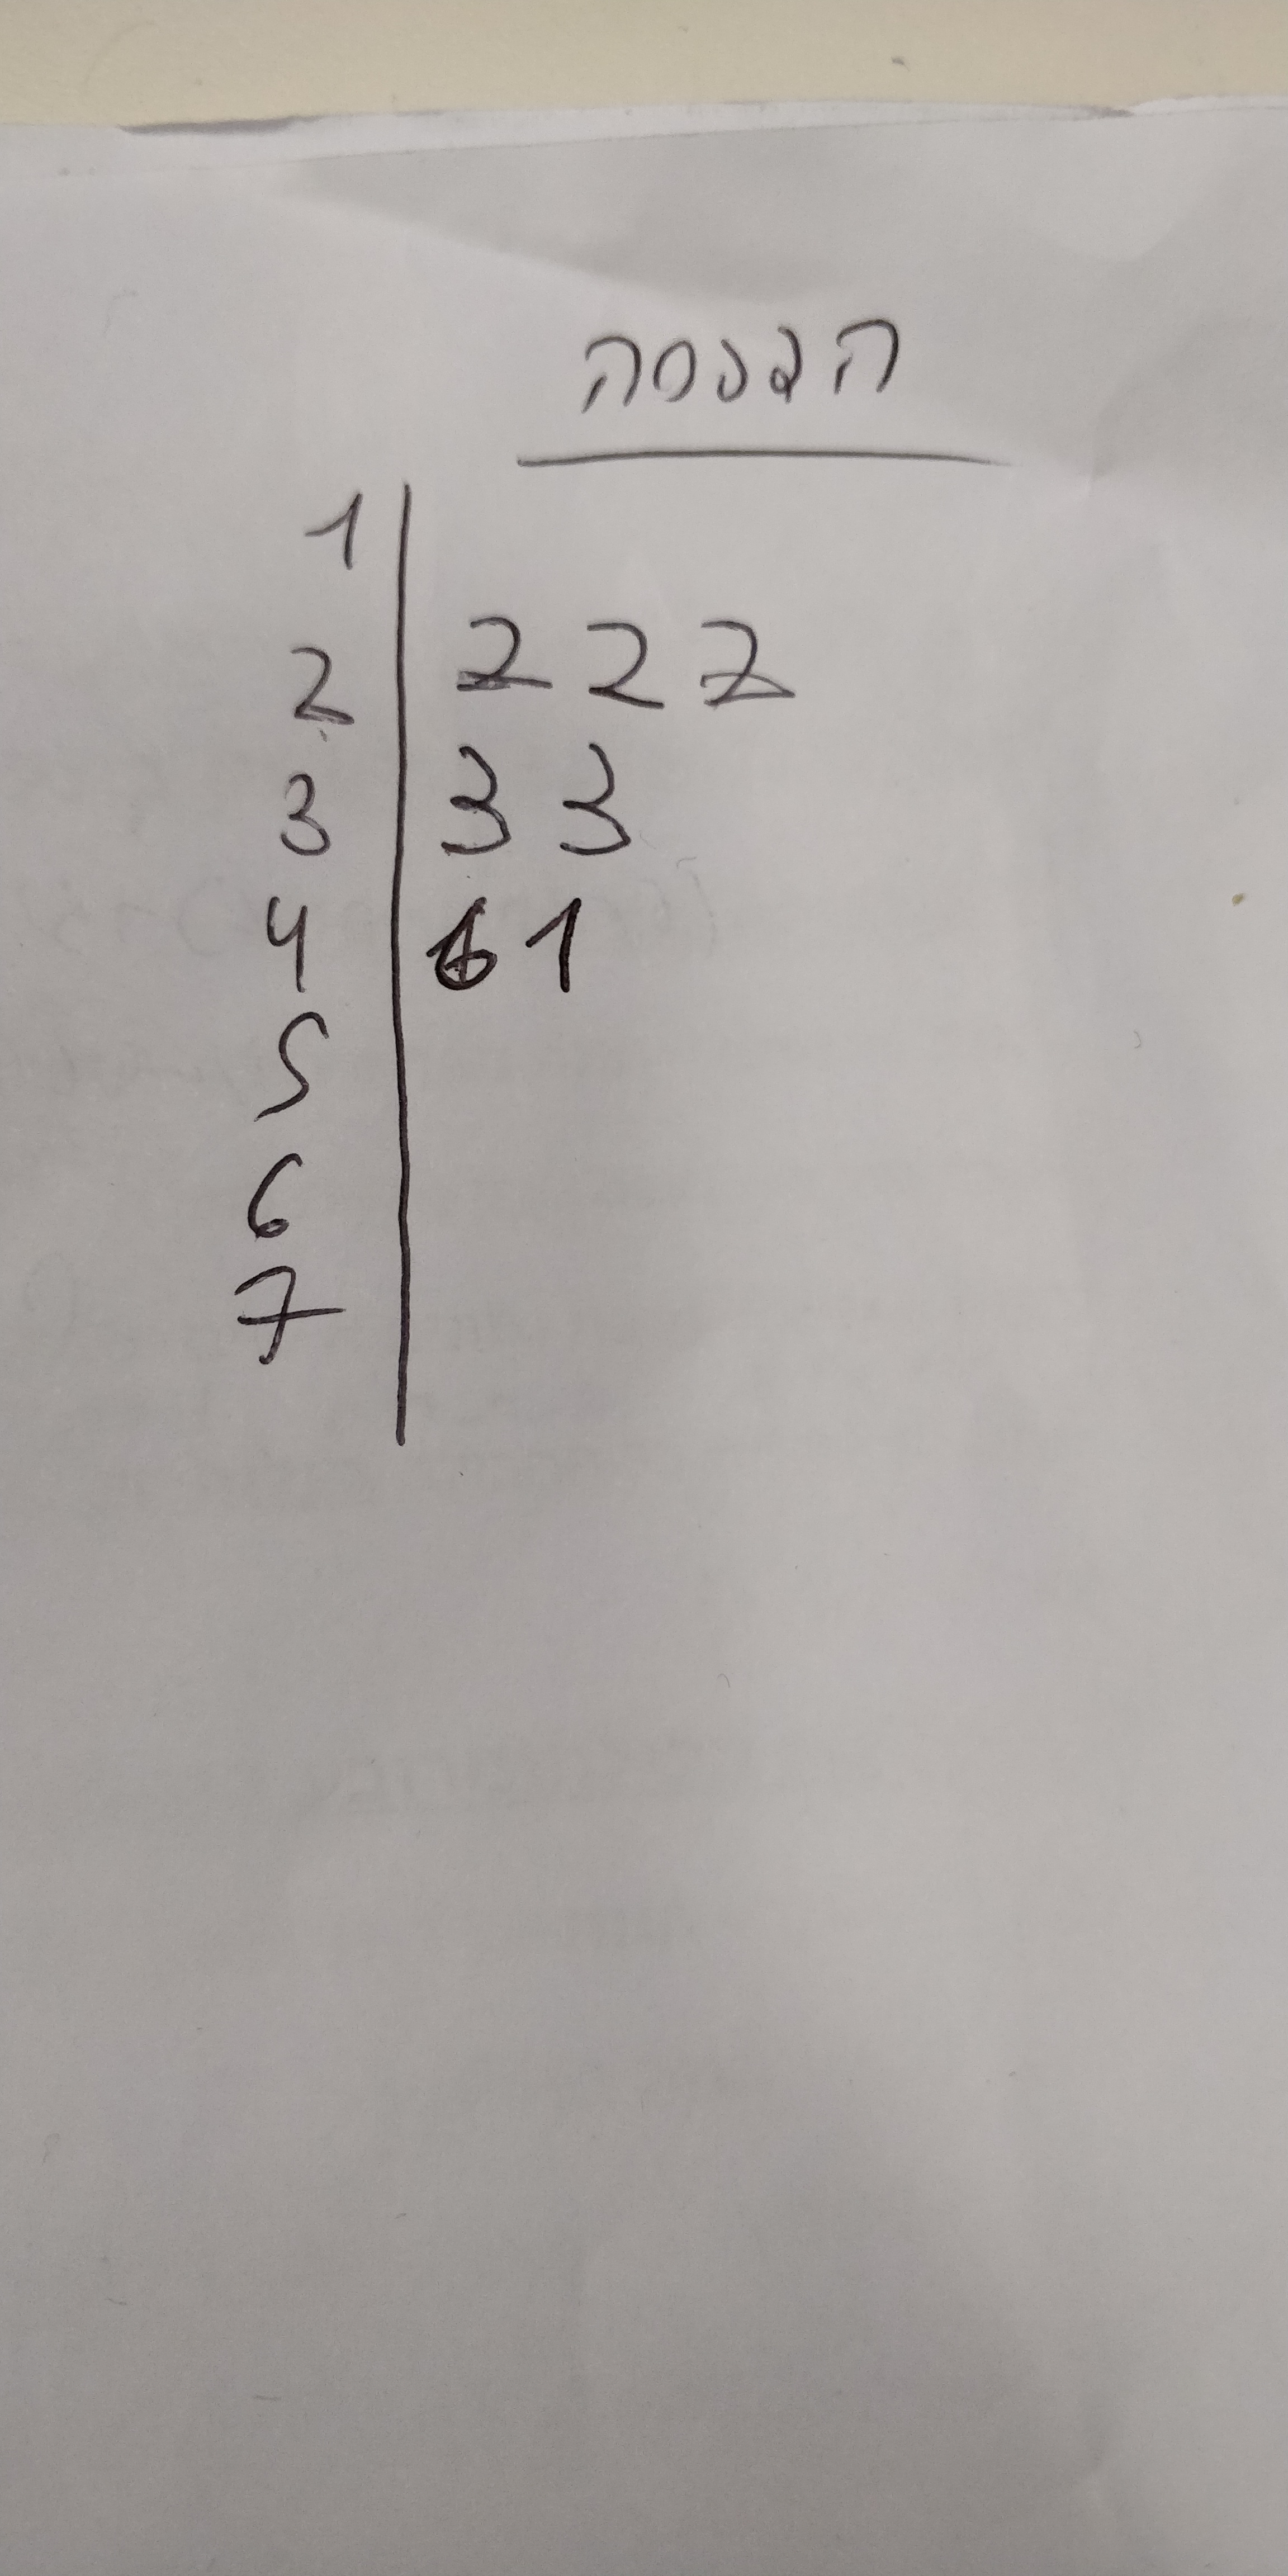 הדפסה
1
2 2 2 2
3 3 3
4 1
5
6
7